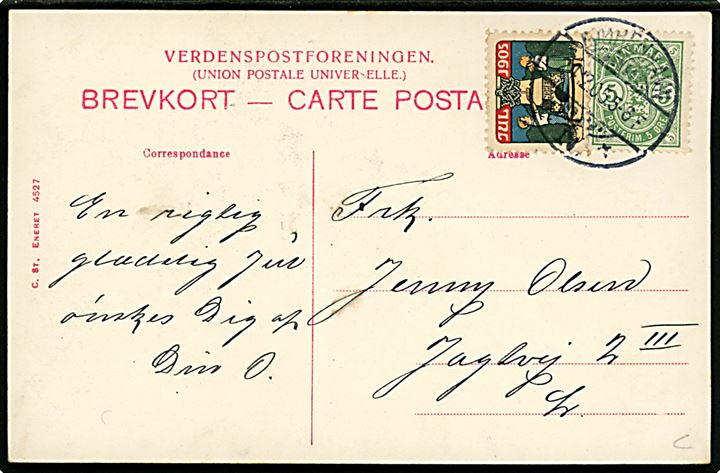 VERDENSPOSTFORENINGEN.
(UNION POSTALE UNIVERSELLE.)
BREVKORT — CARTE POSTA
JUL 1905
DANMARK
5 5
POSTFRIM. 5 ØRE
Correspondance
Adresse
C. ST. ENERET 4527
En rigtig
glædelig Jul
ønskes Dig af
Din O.
Frk.
Jenny Olsen
Jagtvej 2 III